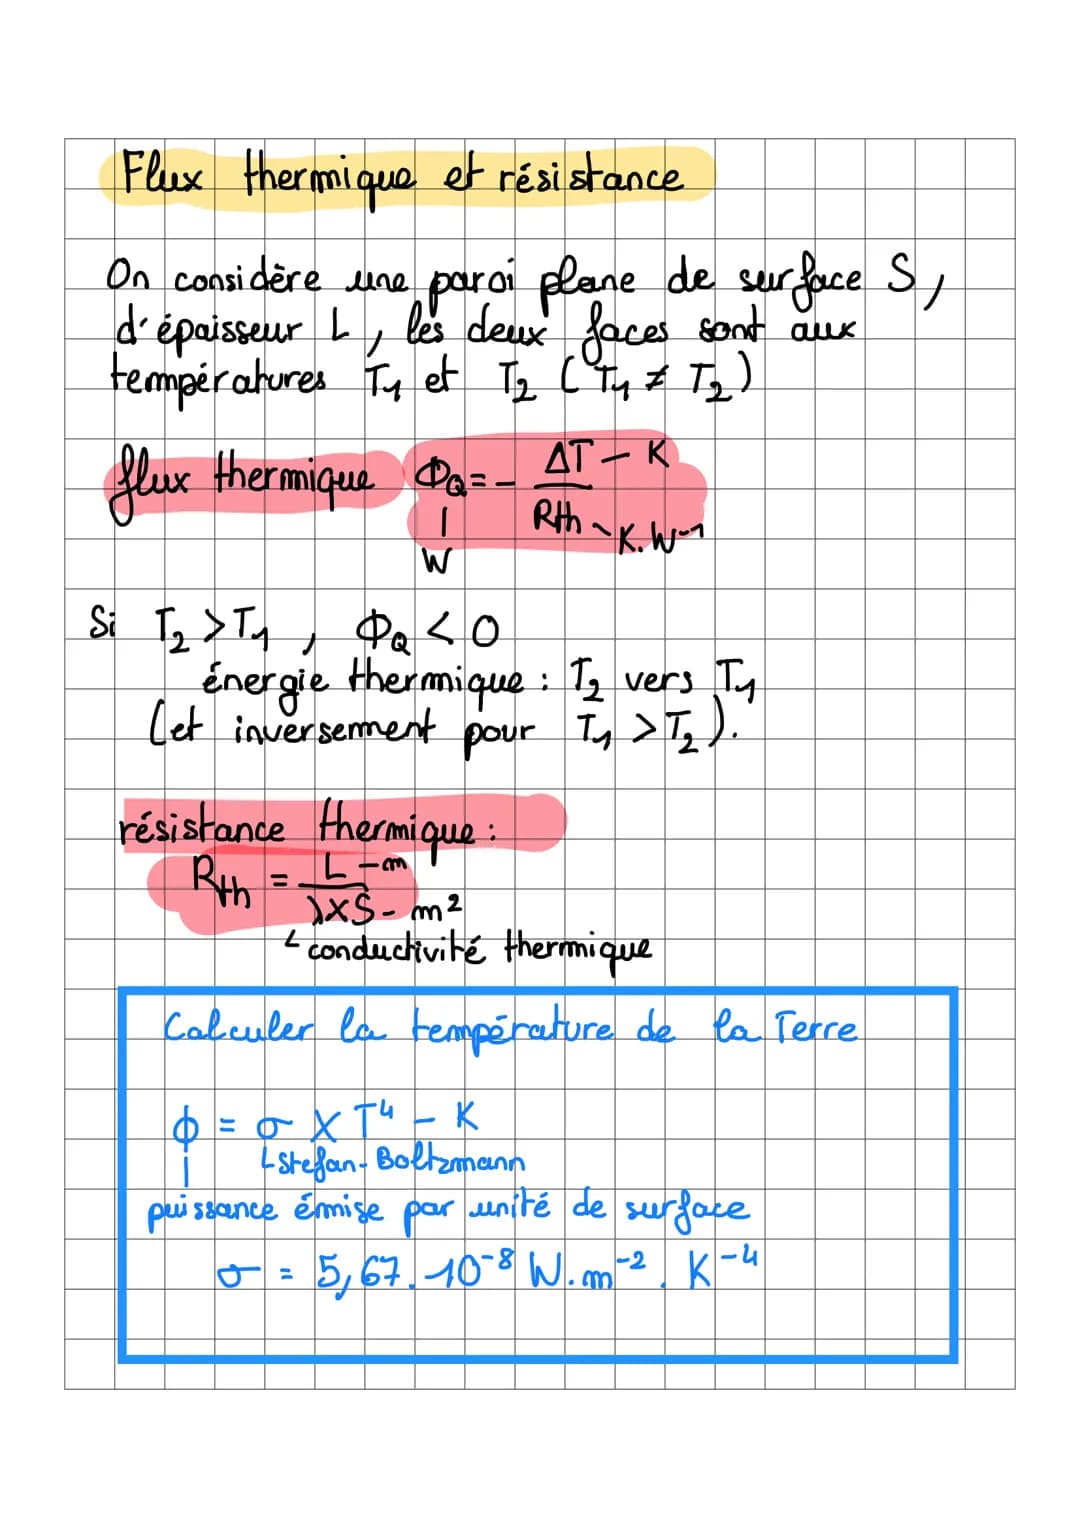 Flux thermique et résistance
On considère une paroi plane de surface S,
d'épaisseur L, les deux faces sont aux
températures T₁ et T₂ (T₁ ≠ T₂)
flux thermique Φ_Q = - ΔT - K
Rth - K.W⁻¹
W
Si T₂ > T₁, Φ_Q < 0
énergie thermique : T₂ vers T₁
(et inversement pour T₁ > T₂).
résistance thermique :
R_th = L - m
λ×S - m²
conductivité thermique
Calculer la température de la Terre
ϕ = σ × T⁴ - K
Stefan-Boltzmann
puissance émise par unité de surface
σ = 5,67.10⁻⁸ W.m⁻².K⁻⁴